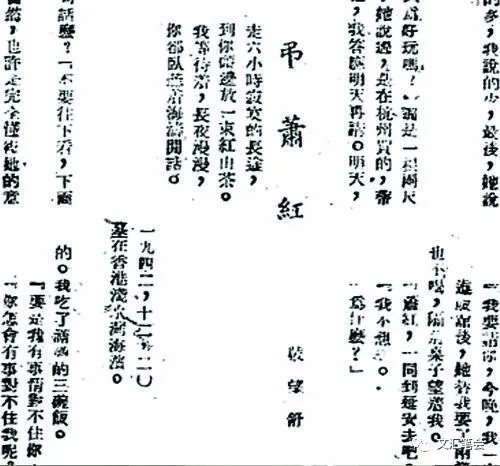 的多，我說的少，最後，她說
好玩嗎？」那是一根兩尺
她說過，是在杭州買的，帶
，我答應明天再講。明天，
「我要請你，今晚，我一
進飯館後，她替我要了兩
也不喝，隔着桌子望着我。
「蕭紅，一同到延安去吧
「我不想去。
「爲什麼？」
弔蕭紅
戴望舒
走六小時寂寞的長途，
到你頭邊放一束紅山茶。
我等待着，長夜漫漫，
你卻臥聽着海濤閒話。
一九四二，十一，二〇
墓在香港淺水灣海濱。
句話麼？「不要往下看，下面
當然，也許是完全懂得她的意
的。我吃了滿滿的三碗飯。
「要是我有事情對不住你
「你怎會有事對不住我呢
文汇笔会